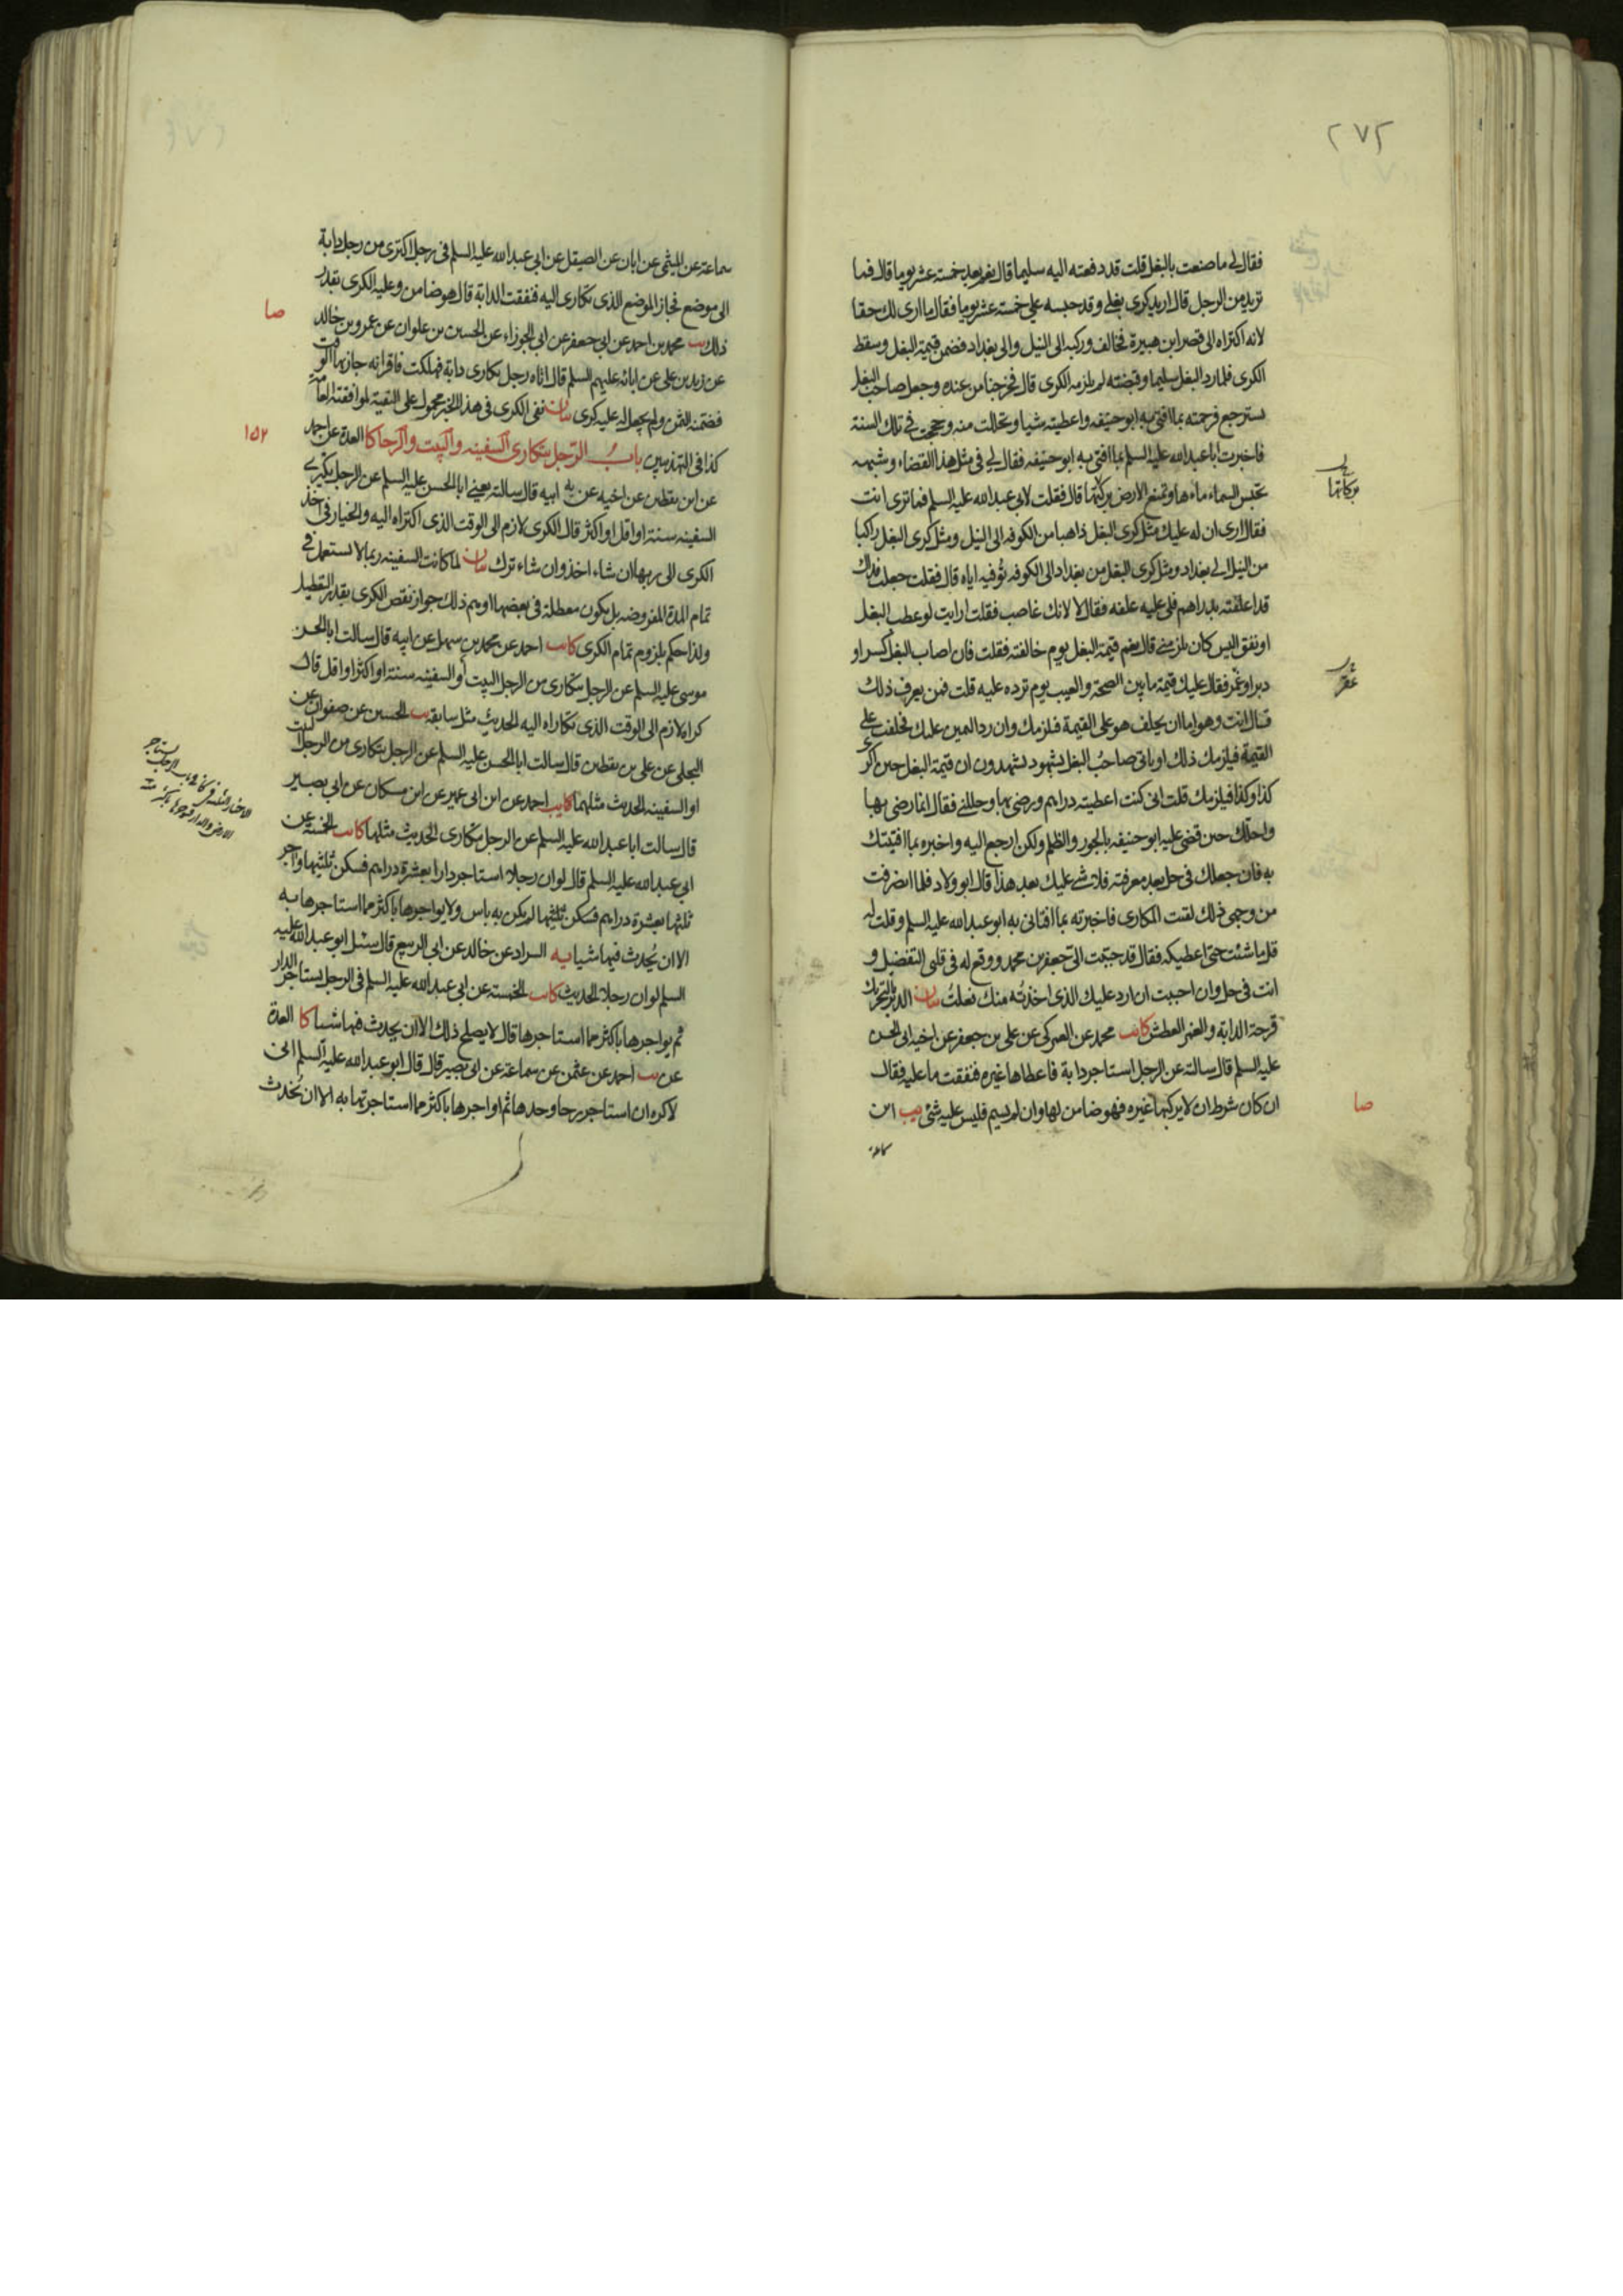 ٢٧٢
فقال لي ما صنعت بالبغل قلت قد دفعته اليه سليما قال نعم بعد خمسة عشر يوما قال فما
تريد من الرجل قال اريد كرى بغلي وقد حبسه علي خمسة عشر يوما فقال ما ارى لك حقا
لانه اكتراه الى قصر ابن هبيرة فخالف وركبه الى النيل والى بغداد فضمن قيمة البغل وسقط
الكرى فلما رد البغل سليما وقبضته لم يلزمه الكرى قال فخرجنا من عنده وجعل صاحب البغل
يسترجع فرحمته بما افتى به ابو حنيفه واعطيته شيا وتحللت منه وحججت في تلك السنة
فاخبرت ابا عبد الله عليه السلم بما افتى به ابو حنيفه فقال لي في مثل هذا القضاء وشبهه
تحبس السماء ماءها وتمنع الارض بركتها قال فقلت لابي عبد الله عليه السلم فما ترى انت
بركاتها
فقال ارى ان له عليك مثل كرى البغل ذاهبا من الكوفه الى النيل ومثل كرى البغل راكبا
من النيل الى بغداد ومثل كرى البغل من بغداد الى الكوفه توفيه اياه قال فقلت جعلت فداك
قد اعلفته بدراهم فلي عليه علفه فقال لا لانك غاصب فقلت ارايت لو عطب البغل
او نفق اليس كان يلزمني قال نعم قيمة البغل يوم خالفته فقلت فان اصاب البغل كسر او
دبر او غمز فقال عليك قيمة ما بين الصحة والعيب يوم ترده عليه قلت فمن يعرف ذلك
عقر
قال انت وهو اما ان يحلف هو على القيمة فلزمك وان رد اليمين عليك فحلفت على
القيمة فيلزمك ذلك او ياتى صاحب البغل بشهود يشهدون ان قيمة البغل حين اكرى
كذا وكذا فيلزمك قلت انى كنت اعطيته دراهم ورضى بها وحللني فقال انما رضى بها
واحلك حين قضى عليه ابو حنيفه بالجور والظلم ولكن ارجع اليه واخبره بما افتيتك
به فان جعلك في حل بعد معرفته فلا شي عليك بعد هذا قال ابو ولاد فلما انصرفت
من وجهي ذلك لقيت المكارى فاخبرته بما افتانى به ابو عبد الله عليه السلم وقلت له
قل ما شئت حتى اعطيكه فقال قد حببت الى جعفر بن محمد ووقع له في قلبي التفضيل و
انت في حل وان احببت ان ارد عليك الذى اخذته منك فعلت بيان الدبر بالتحريك
قرحة الدابة كا يب محمد عن العمركى عن على بن جعفر عن اخيه ابى الحسن
عليه السلم قال سالته عن الرجل استاجر دابة فاعطاها غيره فنفقت ما عليه فقال
صا
ان كان شرط ان لا يركبها غيره فهو ضامن لها وان لم يسم فليس عليه شئ يب ابن
سماعة
سماعة عن الميثمى عن ابان عن الصيقل عن ابى عبد الله عليه السلم في رجل اكترى من رجل دابة
الى موضع فجاز الموضع الذى تكارى اليه فنفقت الدابة قال هو ضامن وعليه الكرى بقدر
صا
ذلك يب محمد بن احمد عن ابي جعفر عن ابى الجوزاء عن الحسين بن علوان عن عمرو بن خالد
عن زيد بن على عن ابائه عليهم السلم قال اتاه رجل تكارى دابة فهلكت فاقر انه جاز بها الوقت
فضمنه الثمن ولم يجعل له عليه كرى بيان نفى الكرى في هذا الخبر محمول على التقية لموافقته العامة
كذا في التهذيبين باب الرجل يتكارى السفينه والبيت والرحا كا العدة عن احمد
١٥٢
عن ابن يقطين عن اخيه عن ابيه قال سالته يعني ابا الحسن عليه السلم عن الرجل يكترى
السفينه سنة او اقل او اكثر قال الكرى لازم الى الوقت الذى اكتراه اليه والخيار في اخذ
الكرى الى ربها ان شاء اخذ وان شاء ترك بيان لما كانت السفينه ربما لا تستعمل في
تمام المدة المفروضه بل يكون معطلة في بعضها اوهم ذلك جواز نقص الكرى بقدر التعطيل
ولذا حكم بلزوم تمام الكرى كا يب احمد عن محمد بن سهل عن ابيه قال سالت ابا الحسن
موسى عليه السلم عن الرجل يتكارى من الرجل البيت او السفينه سنة او اكثر او اقل قال
كراه لازم الى الوقت الذى تكاراه اليه الحديث مثل سابقه يب الحسين عن صفوان عن
البجلى عن على بن يقطين قال سالت ابا الحسن عليه السلم عن الرجل يتكارى من الرجل البيت
او السفينه الحديث مثلهما كا يب احمد عن ابن ابى عمير عن ابن مسكان عن ابى بصير
قال سالت ابا عبد الله عليه السلم عن الرجل يتكارى الحديث مثلهما كا يب الخمسة عن
ابى عبد الله عليه السلم قال لو ان رجلا استاجر دارا بعشرة دراهم فسكن ثلثيها واجر
ثلثها بعشرة دراهم لم يكن به باس ولا يواجرها باكثر مما استاجرها به
الا ان يحدث فيها شيا يه السراد عن خالد عن ابى الربيع قال سئل ابو عبد الله عليه
السلم لو ان رجلا الحديث كا يب الخمسة عن ابى عبد الله عليه السلم في الرجل يستاجر الدار
ثم يواجرها باكثر مما استاجرها قال لا يصلح ذلك الا ان يحدث فيها شيئا كا العدة
عن يب احمد عن عثمن عن سماعة عن ابى بصير قال قال ابو عبد الله عليه السلم انى
لاكره ان استاجر رحا وحدها ثم اواجرها باكثر مما استاجرتها به الا ان يحدث